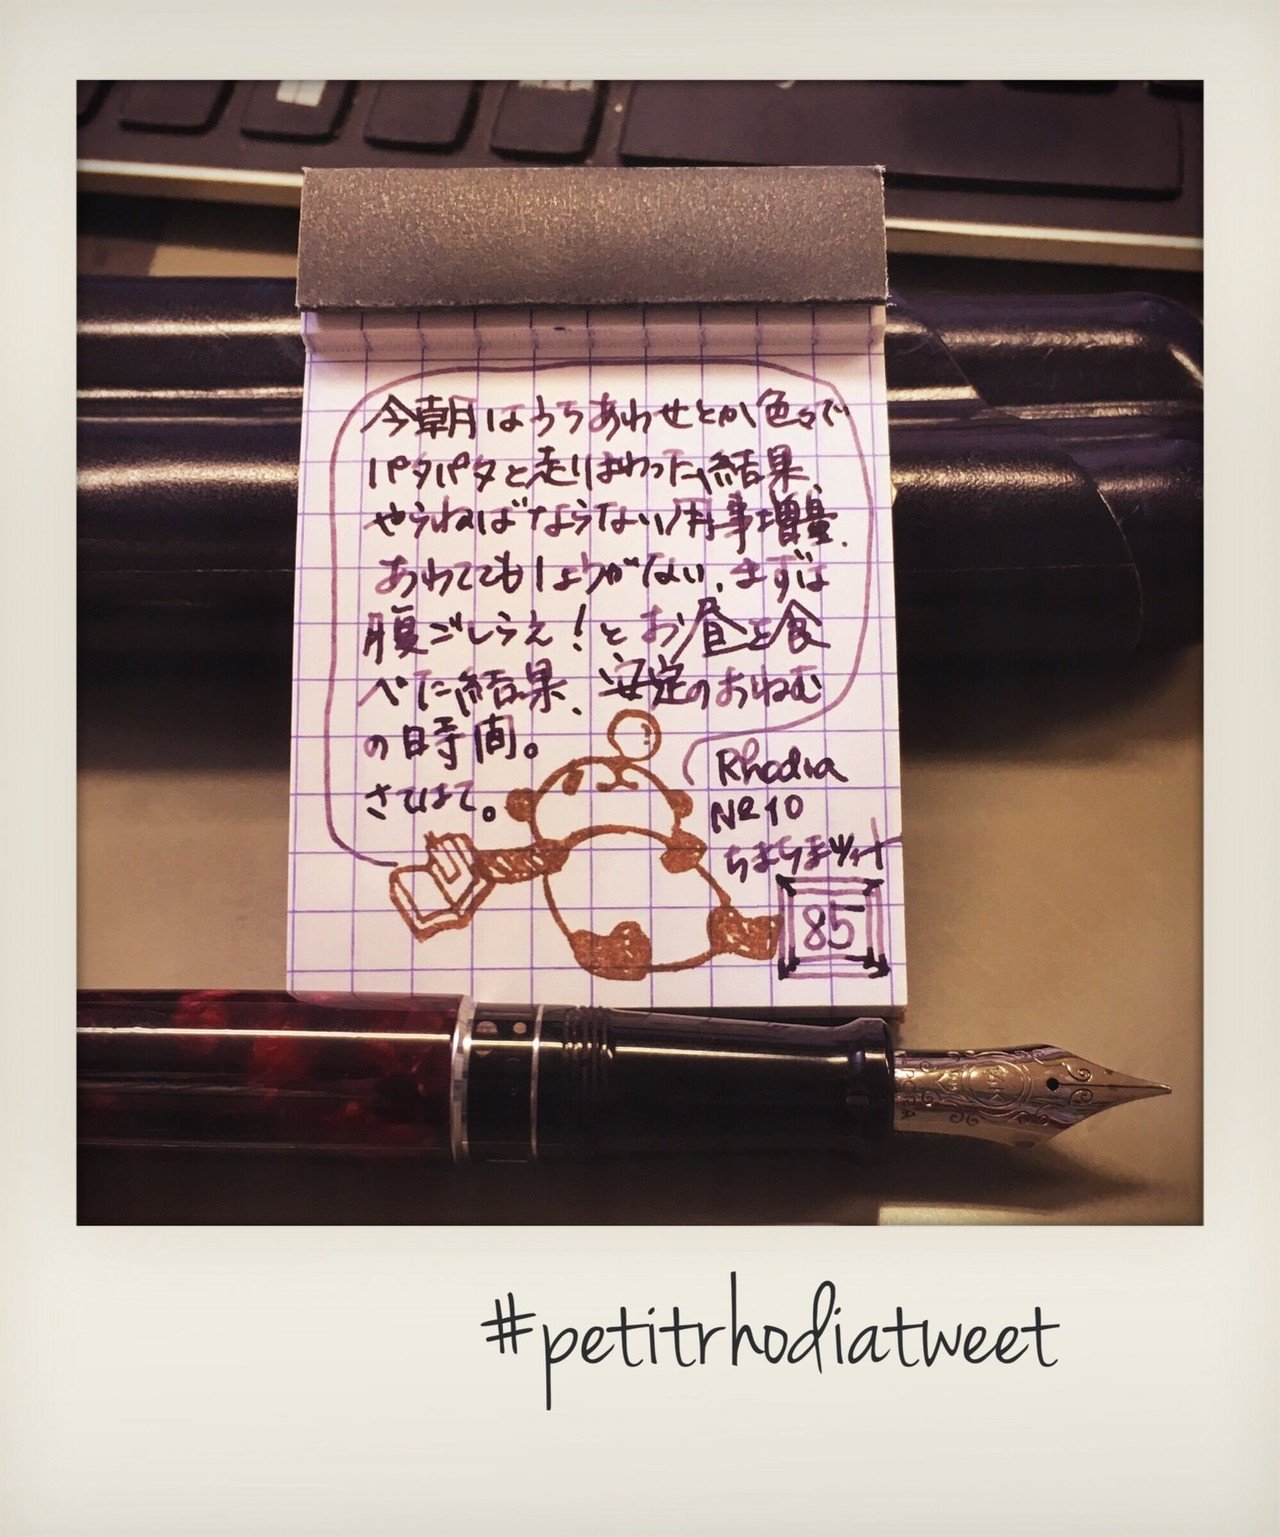 今朝はうちあわせとか色々で
パタパタと走りまわった結果、
やらねばならない用事増量。
あわててもしょうがない、まずは
腹ごしらえ!とお昼を食
べた結果、安定のおねむ
の時間。
さてはて。
Rhodia
No 10
ちまちまツイート
85
#petitrhodiatweet